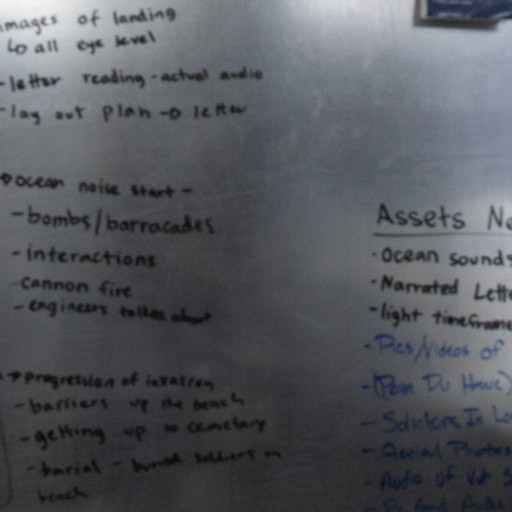 images of landing
↳ all eye level
-letter reading-actual audio
-lay out plan → letter
→ ocean noise start -
-bombs/barracades
-interactions
-cannon fire
-engineers talks about
→ progression of invasion
-barriers up the beach
-getting up to cemetery
-burial - buried soldiers on
beach
Assets
-Ocean sounds
-Narrated
-light timeframe
-Pics/Videos of
-(Poin Du Hawc)
-Soliders In
-Aerial
-Audio of